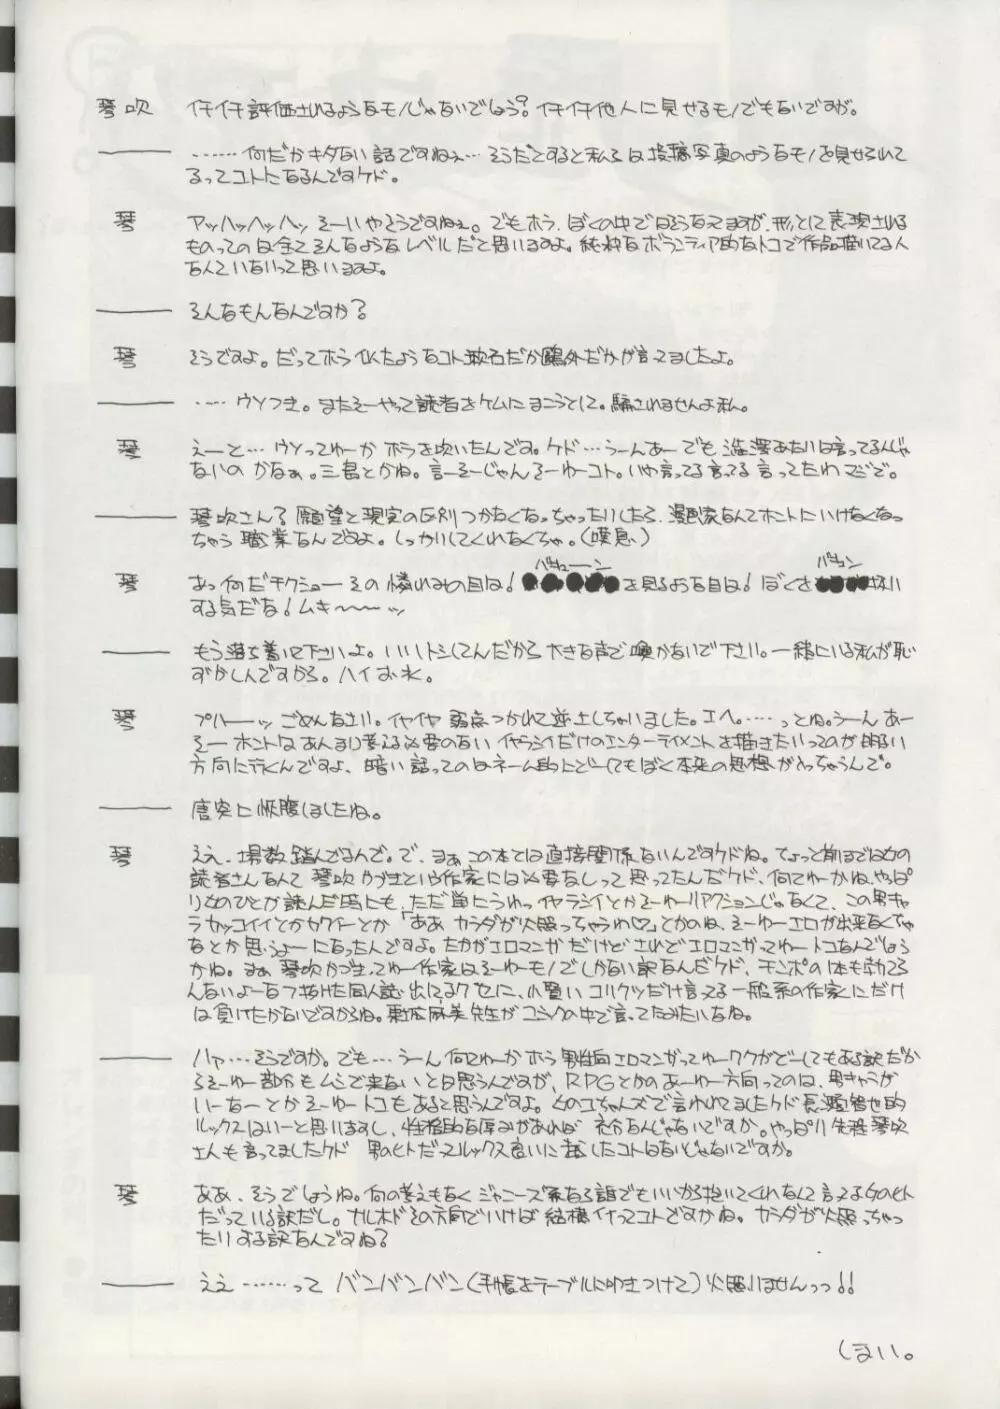 琴吹 イチイチ評価されるようなモノじゃないでしょう？イチイチ他人に見せるモノでもないですが。
―― ……何だかキタない話ですねェ…そうだとすると私らは投稿写真のようなモノを見せられて
るってコトになるんですケド。
琴 アッハッハッハッ そーいやそうですねェ。でもホラ、ぼくの中で
ものってのは全てそんなようなレベルだと思いますよ。純粋なボランティア的なトコで作品描いてる人
なんていないって思いますよ。
―― そんなもんなんですか？
琴 そうですよ。だってホラ似たようなコト漱石だか鷗外だかが言ってましたよ。
―― …… ウソつき。またそーやって読者をケムにまこうとして。騙されませんよ私。
琴 えーと… ウソってゆーか ホラを吹いたんです。ケド…うーんあー でも 澁澤あたりは言ってるんじゃ
ないの かなぁ。三島とかね。言ーそーじゃんそーゆーコト。いや言ってる言ってる 言ってたわ
―― 琴吹さん？ 願望と現実の区別つかなくなっちゃったりしたら、漫画家なんてホントにいけなくなっ
ちゃう 職業なんですよ。しっかりしてくれなくちゃ。(嘆息)
琴 あっ何だチクショー その憐れみの目は！ バキューーン を見るような目は！ ぼくを バキュン 扱い
する気だな！ムキ〜〜〜ッ
―― もう落ち着いて下さいよ。いいトシしてんだから大きな声で喚かないで下さい。一緒にいる私が恥
ずかしんですから。ハイお水。
琴 プハーッ ごめんなさい。イヤイヤ 弱点つかれて逆上しちゃいました。エヘ。……ってね。うーん あー
そー ホントはあんまり考える必要のない イヤラシイだけのエンターテイメントを描きたいってのが明るい
方向に行くんですよ、暗い話ってのはネーム的にどーしてもぼく本来の思想が入っちゃうんで。
―― 唐突に恢復しましたね。
琴 ええ、場数踏んでるんで。で、まぁ この本では直接関係ないんですケドね。ちょっと前までは女の
読者さんなんて 琴吹かづきという作家には必要なしって思ってたんだケド、何てゆーかね、やっぱ
り女のひとが読んだ時にも、ただ単にうわっ イヤラシイとかそーゆーリアクションじゃなくて、この男キャ
ラ カッコイイとかカワイーとか「ああ カラダが火照っちゃうわ♡」とかのね、そーゆーエロが出来なくちゃ
なとか思うよーになったんですよ。たかがエロマンガ だけど されどエロマンガってゆートコなんでしょう
かね。まぁ 琴吹かづきってゆー作家はそーゆーモノでしかない訳なんだケド、チンポの1本も勃てら
んないよーなフ抜けた同人誌 出してるクセに、小賢い コリクツだけ言える 一般系の作家にだけ
は負けたかないですからね。
―― ハァ…そうですか。でも…うーん何てゆーか ホラ 男性向エロマンガってゆーワクがどーしてもある訳だか
らそーゆー部分もムシ出来ないとは思うんですが、RPGとかのあーゆー方向ってのは、男キャラが
いーなーとかそーゆートコもあると思うんですよ。
ルックスはいーと思いますし、性格的な厚みがあれば 充分なんじゃないですか。やっぱり先程 琴吹
さんも言ってましたケド 男のヒトだってルックス良いに 越したコトはないじゃないですか。
琴 ああ、そうでしょうね。何の考えもなく ジャニーズ系なら誰でもいいから抱いてくれなんて言えよ女のヒト
だっている訳だし。ナルホドその方向でいけば 結構イケるってコトですかね。カラダが火照っちゃっ
たりする訳なんですね？
―― ええ ……… って バンバンバン(手帳をテーブルに叩きつけて)火照りませんっっ!!
しまい。